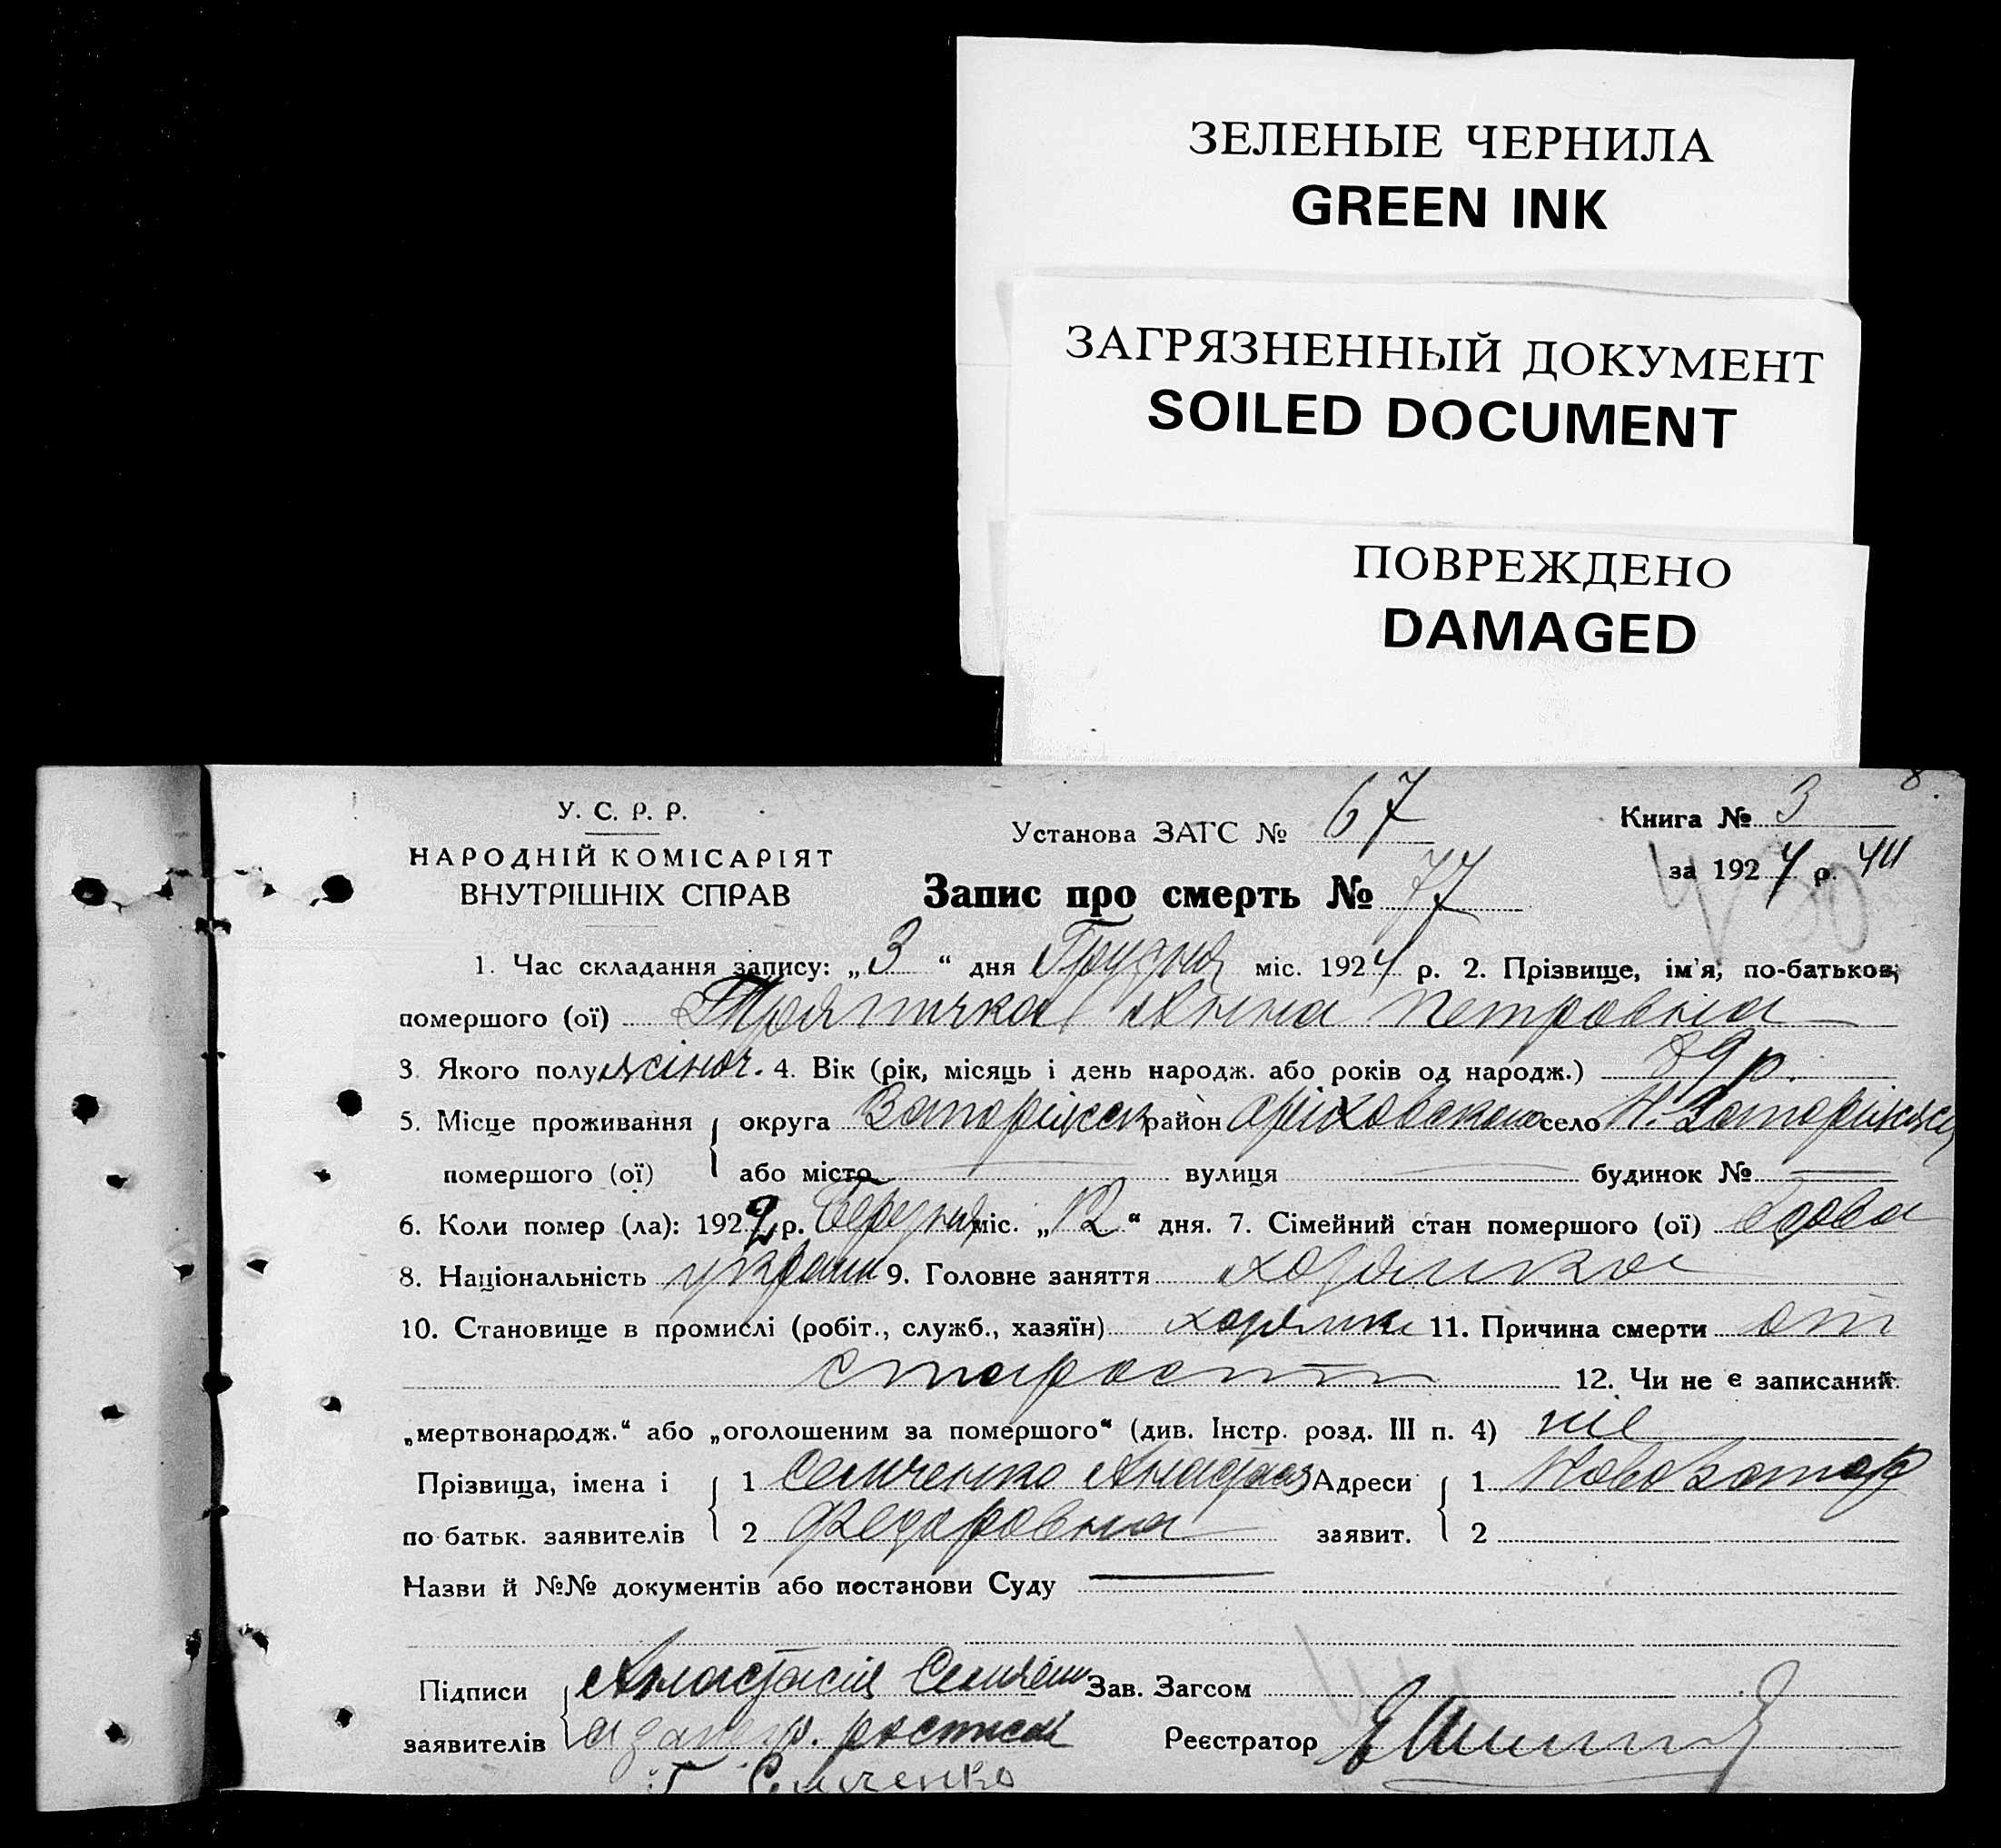 ЗЕЛЕНЫЕ ЧЕРНИЛА
GREEN INK
ЗАГРЯЗНЕННЫЙ ДОКУМЕНТ
SOILED DOCUMENT
ПОВРЕЖДЕНО
DAMAGED
У. С. Р. Р.
НАРОДНІЙ КОМІСАРІЯТ
ВНУТРІШНІХ СПРАВ
Установа ЗАГС № 67
Книга № 3
за 1924 р. 44
Запис про смерть № 77
1. Час складання запису: „3“ дня Грудня міс. 1924 р. 2. Прізвище, ім'я, по-батьков,
помершого (ої) Ганна Петровна
3. Якого полу жіноч. 4. Вік (рік, місяць і день народж. або років од народж.) 89 р.
5. Місце проживання округа Запоріжск район Оріховского село Н. Запоріжжя
помершого (ої) або місто вулиця будинок №
6. Коли помер (ла): 1922 р. Березня міс. „12“ дня. 7. Сімейний стан помершого (ої) вдова
8. Національність україн 9. Головне заняття хозяйка
10. Становище в промислі (робіт., служб., хазяїн) хозяйка 11. Причина смерти от
старости 12. Чи не є записаний
„мертвонародж.“ або „оголошеним за помершого“ (див. Інстр. розд. III п. 4) ніє
Прізвища, імена і 1 Семченко Анастасія Адреси 1 Новозапор
по батьк. заявителів 2 Федоровна заявит. 2
Назви й №№ документів або постанови Суду
Підписи Анастасія Семченко Зав. Загсом
заявителів Реєстратор
Семченко